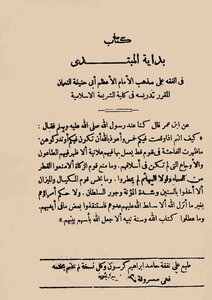 كتاب
بداية المبتدى
فى الفقه على مذهب الأمام الأعظم أبى حنيفة النعمان
المقرر تدريسه فى كلية الشريعة الاسلامية
عن ابن عمر قال كنا عند رسول الله صلى الله عليه وسلم فقال:
«كيف أنتم اذا وقعت فيكم خمس وأعوذ بالله أن تكون فيكم أو تدركوهن:
ما ظهرت الفاحشة فى قوم قط يعمل بها فيهم علانية ألا ظهر فيهم الطاعون
والأوجاع التى لم تكن فى أسلافهم. وما منع قوم الزكاة ألا منعوا القطر
من السماء ولولا البهائم لم يمطروا. وما بخس قوم المكيال والميزان
ألا أخذوا بالسنين وشدة المؤنة وجور السلطان. ولا حكم أمراؤهم
بغير ما أنزل الله ألا سلط الله عليهم عدوهم فاستنقذوا بعض ما فى أيديهم
وما عطلوا كتاب الله وسنة نبيه ألا جعل الله بأسهم بينهم»
طبع على نفقة حامد ابراهيم كرسون وكل نسخة لم تختم بختمه
فهى مسروقة